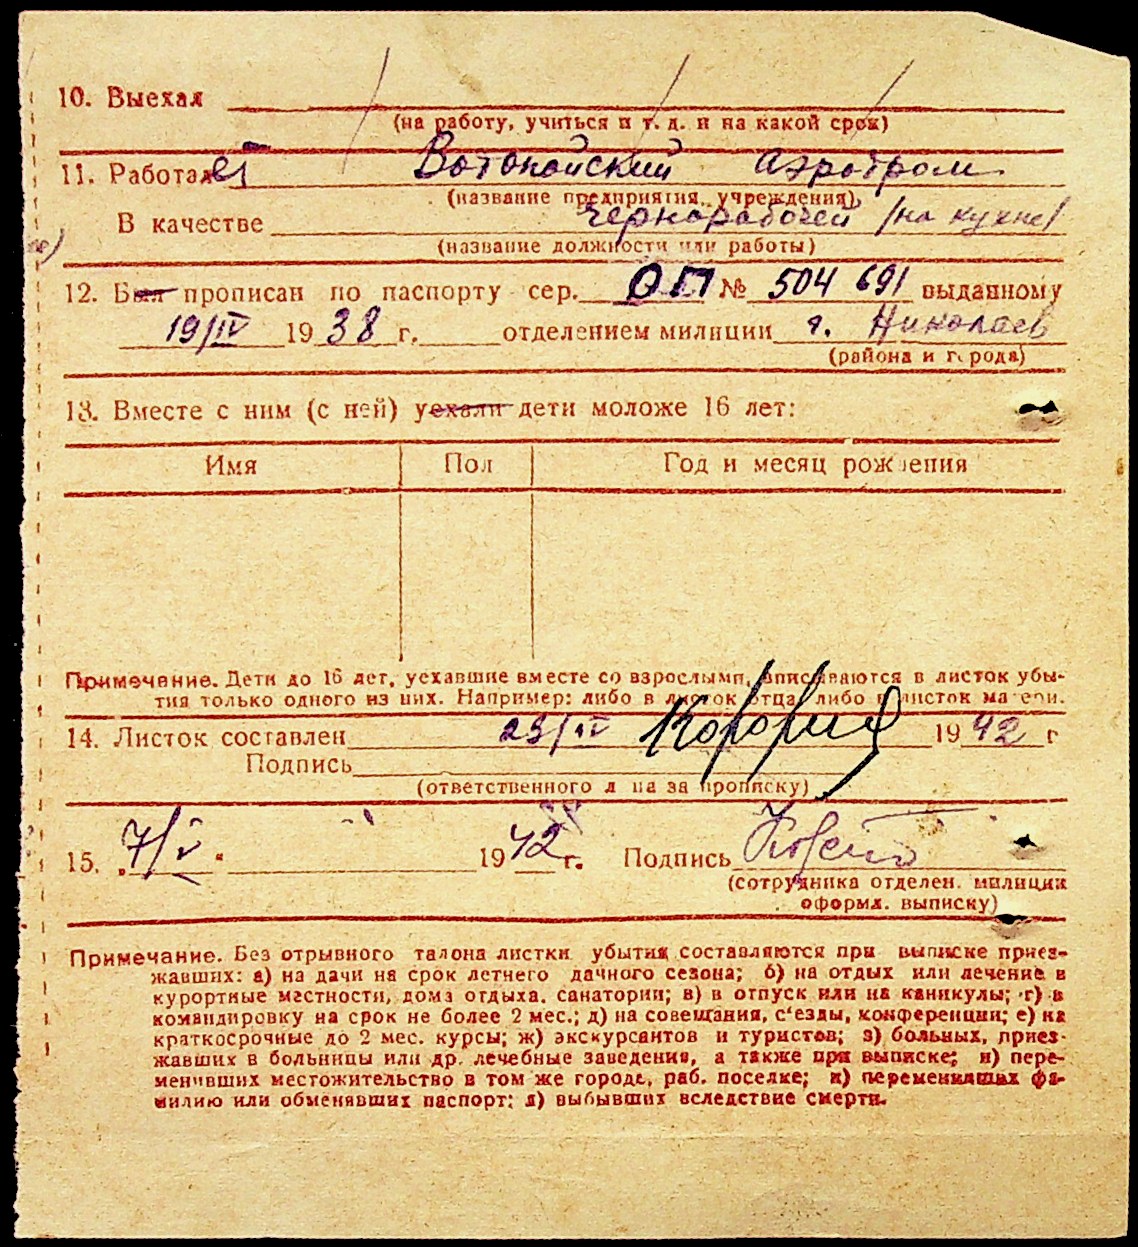 10. Выехал
(на работу, учиться и т. д. и на какой срок)
11. Работает Вотопойский аэродром
(название предприятия, учреждения)
В качестве чернорабочей /на кухне/
(название должности или работы)
12. Был прописан по паспорту сер. ОП № 504 691 выданному
19/IV 1938 г. отделением милиции г. Николаев
(района и города)
13. Вместе с ним (с ней) уехали дети моложе 16 лет:
Имя Пол Год и месяц рождения
Примечание. Дети до 16 лет, уехавшие вместе со взрослыми, вписываются в листок убы-
тия только одного из них. Например: либо в листок отца, либо в листок матери.
14. Листок составлен 23/IV 1942 г
Подпись
(ответственного лица за прописку)
15. 7/V 1942 г. Подпись
(сотрудника отделен. милиции
оформл. выписку)
Примечание. Без отрывного талона листки убытия составляются при выписке приез-
жавших: а) на дачи на срок летнего дачного сезона; б) на отдых или лечение в
курортные местности, дома отдыха, санатории; в) в отпуск или на каникулы; г) в
командировку на срок не более 2 мес.; д) на совещания, с'езды, конференции; е) на
краткосрочные до 2 мес. курсы; ж) экскурсантов и туристов; з) больных, приез-
жавших в больницы или др. лечебные заведения, а также при выписке; и) пере-
менивших местожительство в том же городе, раб. поселке; к) переменивших фа-
милию или обменявших паспорт; л) выбывших вследствие смерти.